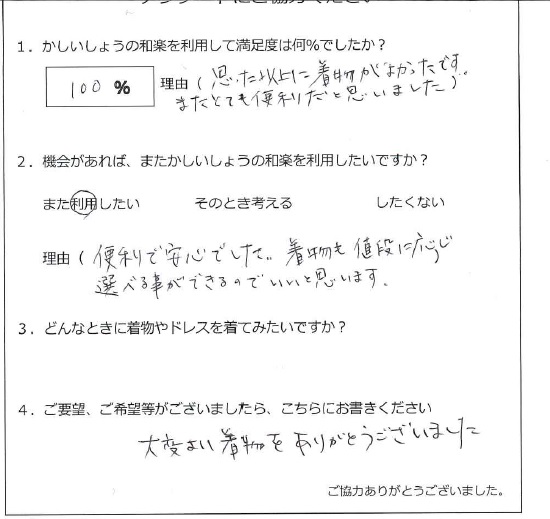 アンケートにご協力ください
1．かしいしょうの和楽を利用して満足度は何％でしたか？
100 ％ 理由（ 思った以上に着物がよかったです。
またとても便利だと思いました ）
2．機会があれば、またかしいしょうの和楽を利用したいですか？
また利用したい そのとき考える したくない
理由（ 便利で安心でした。着物も値段に応じ
選べる事ができるのでいいと思います。
3．どんなときに着物やドレスを着てみたいですか？
4．ご要望、ご希望等がございましたら、こちらにお書きください
大変よい着物をありがとうございました
ご協力ありがとうございました。